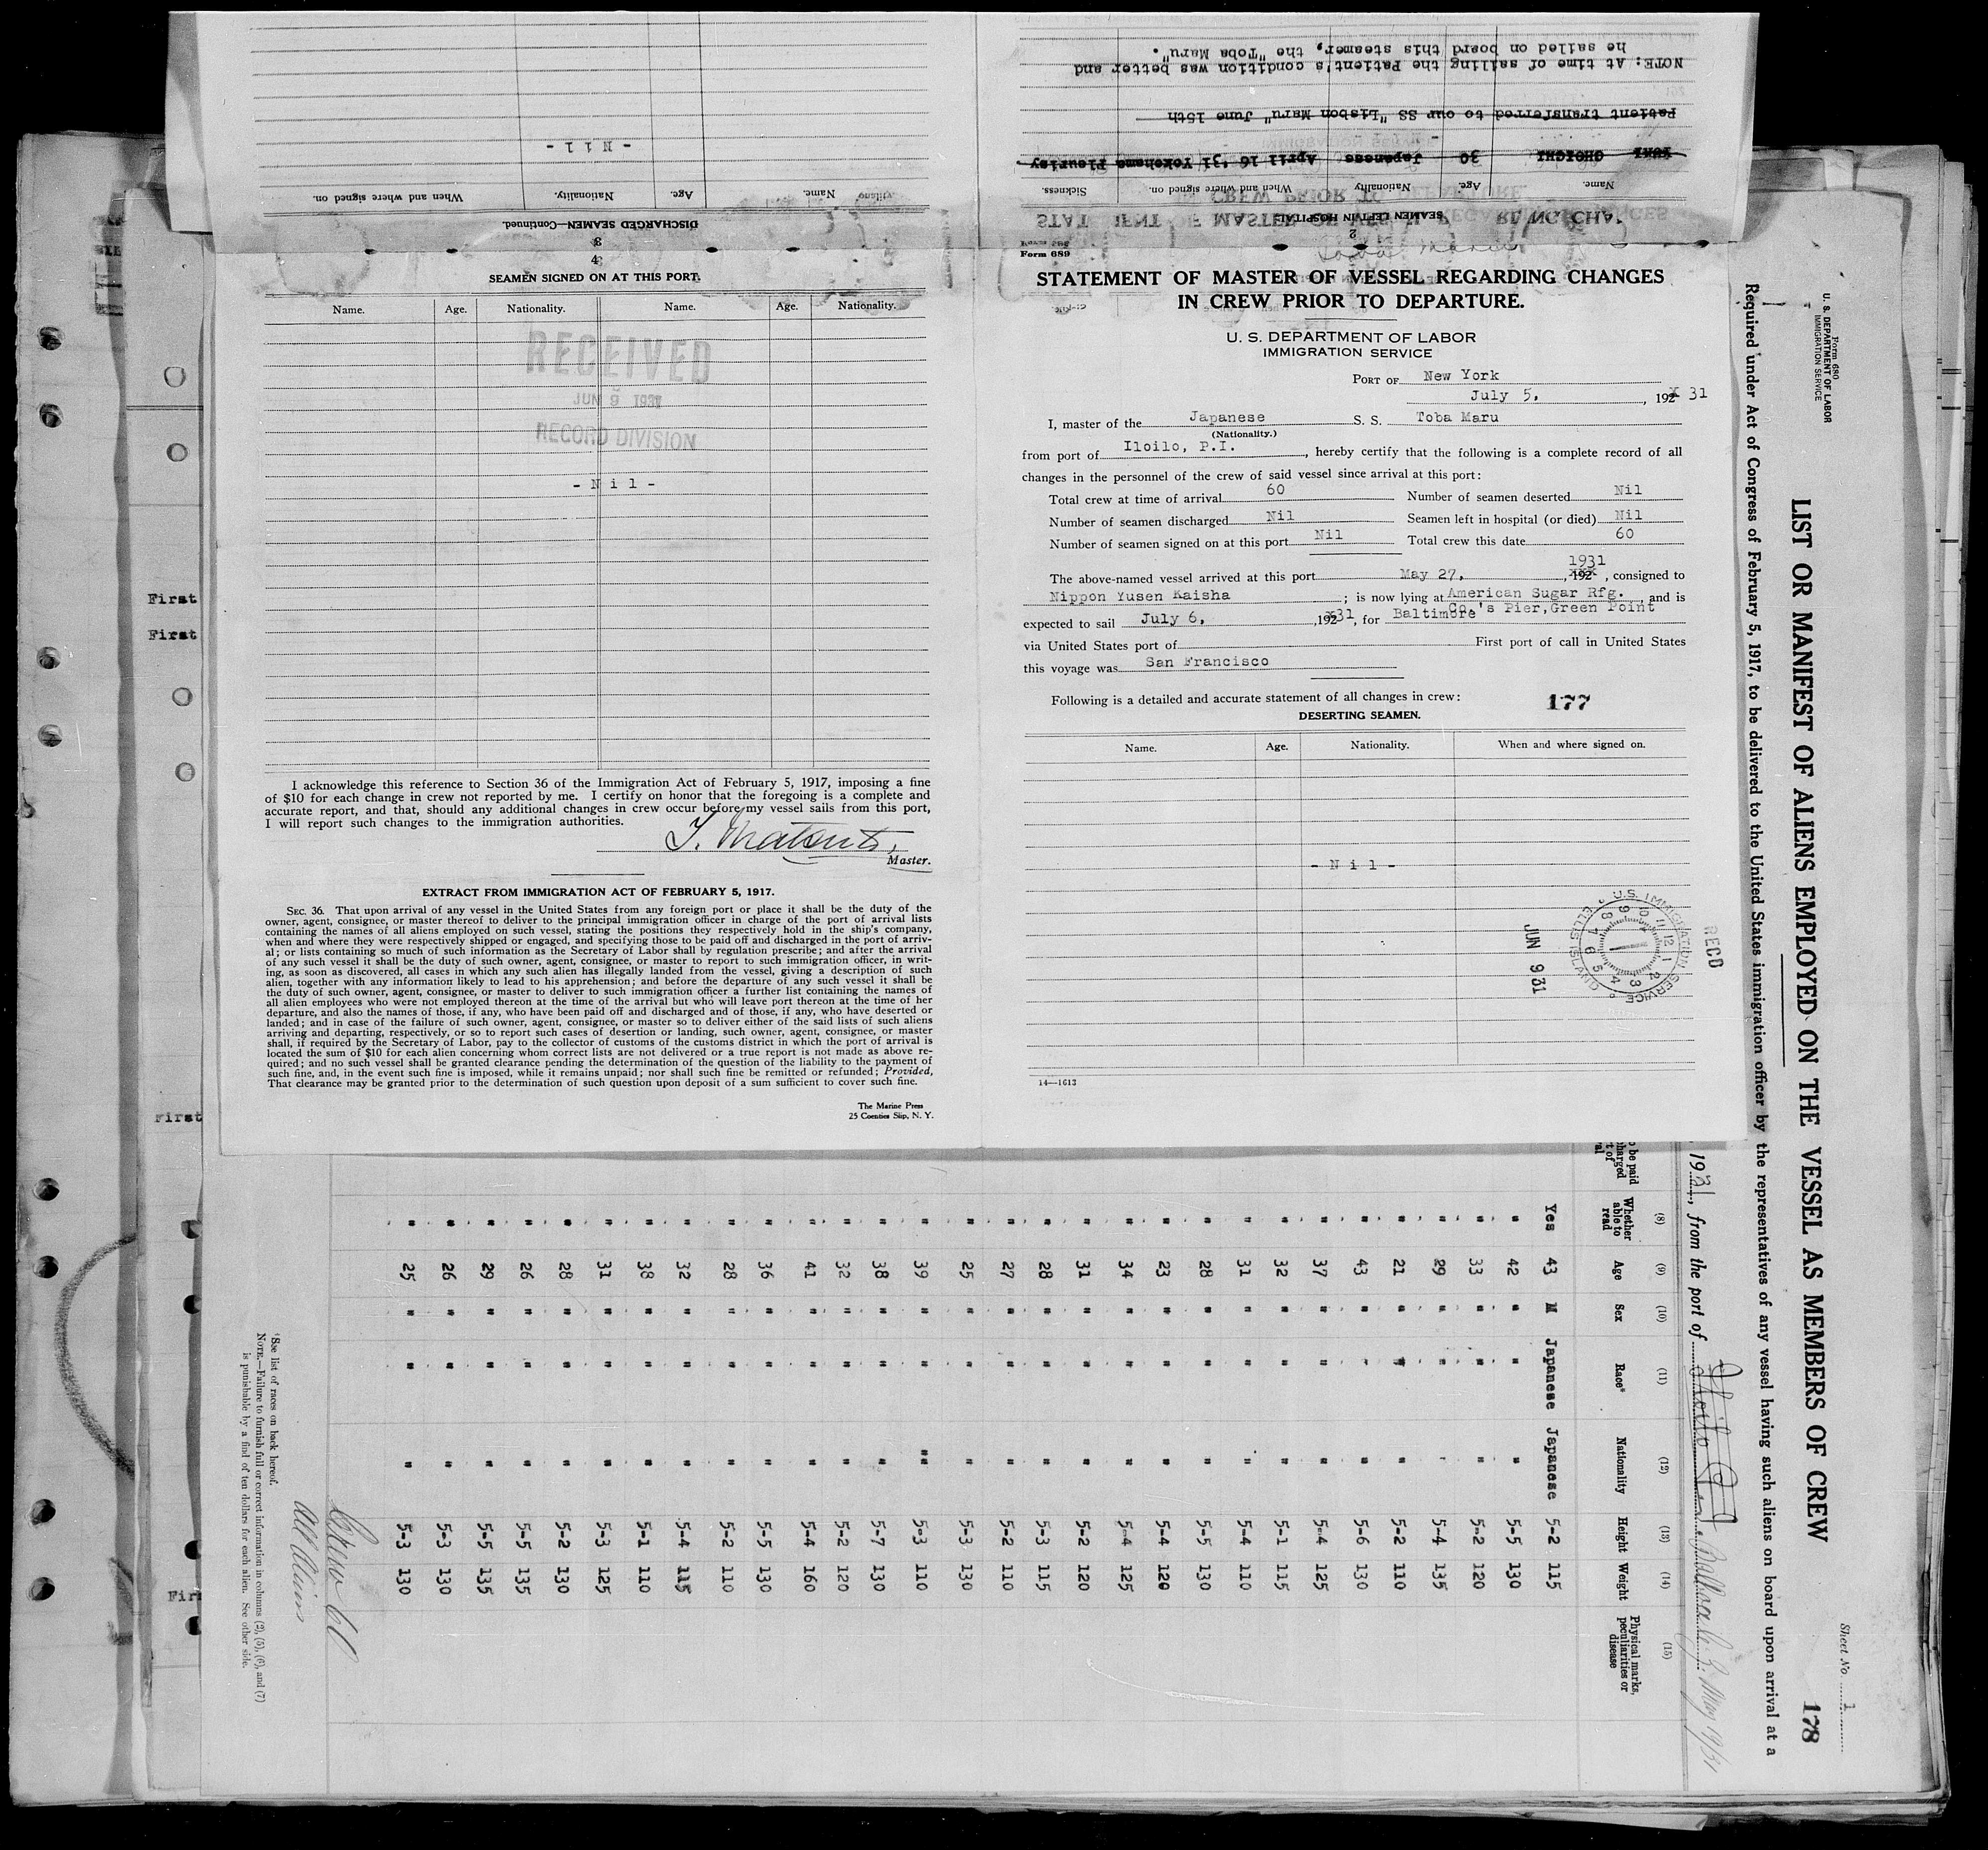 NOTE: At time of sailing the Patient's condition was better and
he sailed on board this steamer, the "Toba Maru".
Patient transferred to our SS "Lisbon Maru" June 15th
YUKI CHOICHI 30 Japanese April 16 '31 Yokohama Pleurisy
Name. Age. Nationality When and where signed on. Sickness.
SEAMEN LEFT IN HOSPITAL
2
- N i l -
Name. Age. Nationality. When and where signed on.
DISCHARGED SEAMEN—Continued.
3
4
SEAMEN SIGNED ON AT THIS PORT.
Name. Age. Nationality. Name. Age. Nationality.
RECEIVED
JUN 9 1931
RECORD DIVISION
- N i l -
I acknowledge this reference to Section 36 of the Immigration Act of February 5, 1917, imposing a fine
of $10 for each change in crew not reported by me. I certify on honor that the foregoing is a complete and
accurate report, and that, should any additional changes in crew occur before my vessel sails from this port,
I will report such changes to the immigration authorities.
Master.
EXTRACT FROM IMMIGRATION ACT OF FEBRUARY 5, 1917.
SEC. 36. That upon arrival of any vessel in the United States from any foreign port or place it shall be the duty of the
owner, agent, consignee, or master thereof to deliver to the principal immigration officer in charge of the port of arrival lists
containing the names of all aliens employed on such vessel, stating the positions they respectively hold in the ship's company,
when and where they were respectively shipped or engaged, and specifying those to be paid off and discharged in the port of arriv-
al; or lists containing so much of such information as the Secretary of Labor shall by regulation prescribe; and after the arrival
of any such vessel it shall be the duty of such owner, agent, consignee, or master to report to such immigration officer, in writ-
ing, as soon as discovered, all cases in which any such alien has illegally landed from the vessel, giving a description of such
alien, together with any information likely to lead to his apprehension; and before the departure of any such vessel it shall be
the duty of such owner, agent, consignee, or master to deliver to such immigration officer a further list containing the names of
all alien employees who were not employed thereon at the time of the arrival but who will leave port thereon at the time of her
departure, and also the names of those, if any, who have been paid off and discharged and of those, if any, who have deserted or
landed; and in case of the failure of such owner, agent, consignee, or master so to deliver either of the said lists of such aliens
arriving and departing, respectively, or so to report such cases of desertion or landing, such owner, agent, consignee, or master
shall, if required by the Secretary of Labor, pay to the collector of customs of the customs district in which the port of arrival is
located the sum of $10 for each alien concerning whom correct lists are not delivered or a true report is not made as above re-
quired; and no such vessel shall be granted clearance pending the determination of the question of the liability to the payment of
such fine, and, in the event such fine is imposed, while it remains unpaid; nor shall such fine be remitted or refunded; Provided,
That clearance may be granted prior to the determination of such question upon deposit of a sum sufficient to cover such fine.
The Marine Press
25 Coenties Slip, N. Y.
Form 689
STATEMENT OF MASTER OF VESSEL REGARDING CHANGES
IN CREW PRIOR TO DEPARTURE.
U. S. DEPARTMENT OF LABOR
IMMIGRATION SERVICE
PORT OF New York
July 5, , 192 31
I, master of the Japanese S. S. Toba Maru
(Nationality.)
from port of Iloilo, P.I. , hereby certify that the following is a complete record of all
changes in the personnel of the crew of said vessel since arrival at this port:
Total crew at time of arrival 60 Number of seamen deserted Nil
Number of seamen discharged Nil Seamen left in hospital (or died) Nil
Number of seamen signed on at this port Nil Total crew this date 60
1931
The above-named vessel arrived at this port May 27, , 192 , consigned to
Nippon Yusen Kaisha ; is now lying at American Sugar Rfg. and is
Co.'s Pier, Green Point
expected to sail July 6, , 192 31, for Baltimore
via United States port of First port of call in United States
this voyage was San Francisco
Following is a detailed and accurate statement of all changes in crew: 177
DESERTING SEAMEN.
Name. Age. Nationality. When and where signed on.
- N i l -
14—1613
U.S. IMMIGRATION SERVICE ELLIS ISLAND
RECD
JUN 9 31
First
First
First
Form 680
U. S. DEPARTMENT OF LABOR
IMMIGRATION SERVICE
Sheet No. 1
LIST OR MANIFEST OF ALIENS EMPLOYED ON THE VESSEL AS MEMBERS OF CREW 178
Required under Act of Congress of February 5, 1917, to be delivered to the United States immigration officer by the representatives of any vessel having such aliens on board upon arrival at a
1931, from the port of Iloilo P.I.
(8) (9) (10) (11) (12) (13) (14) (15)
Whether able to read Age Sex Race* Nationality Height Weight Physical marks, peculiarities or disease
Yes 43 M Japanese Japanese 5-2 115
" 42 " " " 5-5 130
" 33 " " " 5-2 120
" 29 " " " 5-4 135
" 21 " " " 5-2 110
" 43 " " " 5-6 130
" 37 " " " 5-4 125
" 32 " " " 5-1 115
" 31 " " " 5-4 110
" 28 " " " 5-5 130
" 23 " " " 5-4 120
" 34 " " " 5-4 125
" 31 " " " 5-2 120
" 28 " " " 5-3 115
" 27 " " " 5-2 110
" 25 " " " 5-3 130
" 39 " " " 5-3 110
" 38 " " " 5-7 130
" 32 " " " 5-2 120
" 41 " " " 5-4 160
" 36 " " " 5-5 130
" 28 " " " 5-2 110
" 32 " " " 5-4 115
" 38 " " " 5-1 110
" 31 " " " 5-3 125
" 28 " " " 5-2 130
" 26 " " " 5-5 135
" 29 " " " 5-5 135
" 26 " " " 5-3 130
" 25 " " " 5-3 130
Crew 60
All Aliens
*See list of races on back hereof.
NOTE.—Failure to furnish full or correct information in columns (2), (5), (6), and (7)
is punishable by a find of ten dollars for each alien. See other side.